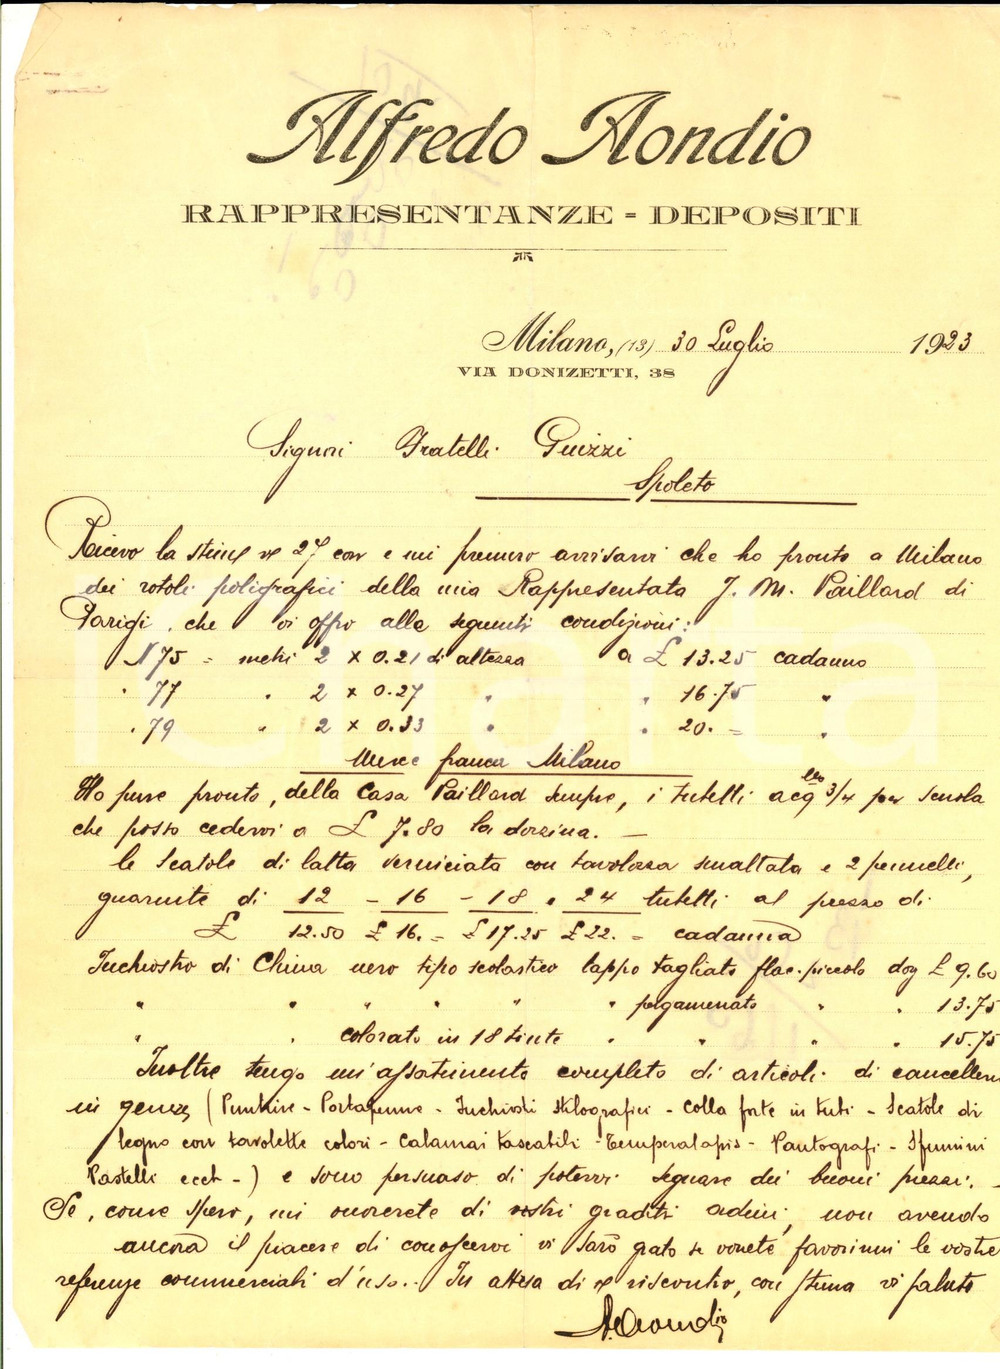 Alfredo Aondio
RAPPRESENTANZE = DEPOSITI
Milano, (13) 30 Luglio 1923
VIA DONIZETTI, 38
Signori Fratelli Guizzi
Spoleto
Ricevo la 27 corr e mi premuro avvisarvi che ho pronto a Milano
dei rotoli poligrafici della mia Rappresentata J. M. Paillard di
Parigi, che vi offro alle seguenti condizioni:
N 75 = metri 2 x 0.21 di altezza a £ 13.25 cadauno
" 77 " 2 x 0.27 " " 16.75 "
" 79 " 2 x 0.33 " " 20. = "
Merce franca Milano
Ho pure pronto, della Casa Paillard sempre, i tubetti acqllo 3/4 per scuola
che posso cedervi a £ 7.80 la dozzina. —
le Scatole di latta verniciata con tavolozza smaltata e 2 pennelli,
guarnite di 12 - 16 - 18 e 24 tubetti al prezzo di
£ 12.50 £ 16. = £ 17.25 £ 22. = cadauna
Inchiostro di China nero tipo scolastico tappo tagliato flac. piccolo doz £ 9.60
" " " " " " pergamenato " " 13.75
" " colorato in 18 tinte " " " " 15.75
Inoltre tengo un'assortimento completo di articoli di canceller
in genere (Puntine - Portapenne - Inchiostri Stilografici - Colla forte in tubi - Scatole di
legno con tavolette colori - Calamai tascabili - Temperalapis - Pantografi - Sfumini
Pastelli ecct -) e sono persuaso di potervi segnare dei buoni prezzi. -
Se, come spero, mi onorerete di vostri graditi ordini, non avendo
ancora il piacere di conoscervi vi sarò grato se vorrete favorirmi le vostre
referenze commerciali d'uso. In attesa di riscontro, con stima vi saluto
A. Aondio